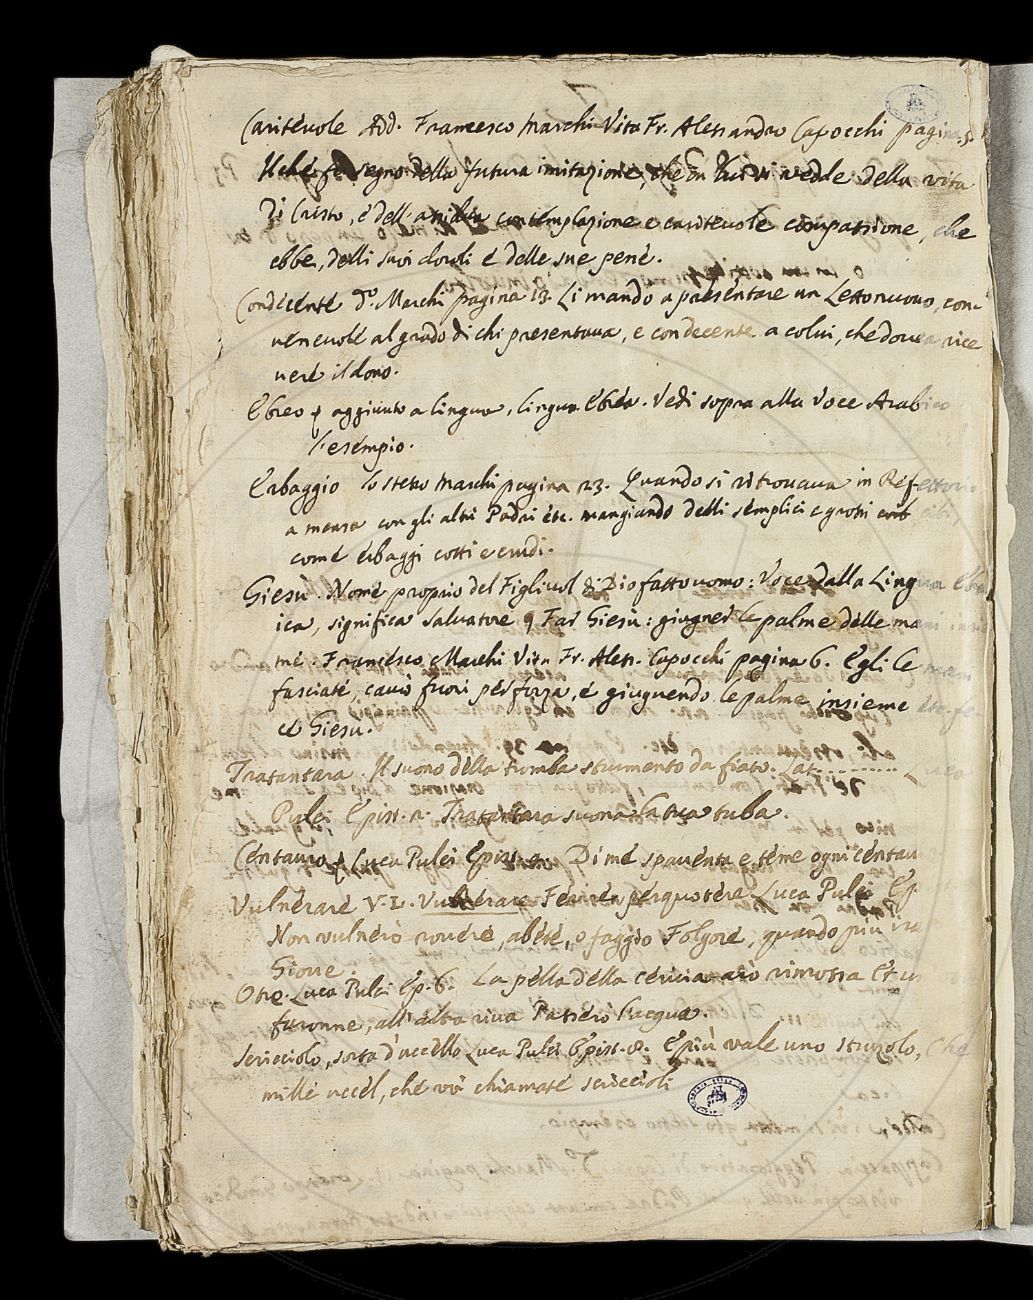 Caritevole Add. Francesco Marchi Vita Fr. Alessandro Capocchi pagina 5.
Il che fe segno della futura imitazione, che in lui si vedde della vita
Di Cristo, e dell' assidua contemplazione e caritevole compassione, che
ebbe, delli suoi duoli e delle sue pene.
Condecente d.o Marchi pagina 13. Li mando a presentare un Lettonuovo, con-
venevole al grado di chi presentava, e condecente a colui, che dovea rice
vere il dono.
Ebreo aggiunto a lingua, lingua Ebrea. Vedi sopra alla Voce Arabico
l'esempio.
Erbaggio Lo stesso Marchi pagina 23. Quando si ritrovava in Refettorio
a mensa con gli altri Padri etc. mangiando delli semplici e grossi cibi,
come erbaggi cotti e crudi.
Giesù. Nome proprio del Figliuol di Dio fatto uomo: Voce dalla Lingua Ebra
ica, significa Salvatore Far Giesù: giugner le palme delle mani insie
me. Francesco Marchi Vita Fr. Aless. Capocchi pagina 6. Egli le mani
fasciate, cavò fuori per forza, e giugnendo le palme insieme etc. fe
ce Giesù.
Tratantara. Il suono della tromba strumento da fiato. Lat.
Pulci Epist. Tratantara suona la tua tuba.
Centauro Luca Pulci Epist. Di me spaventa e teme ogni centau
Vulnerare V. L. Vulnerare Ferire, perquotere Luca Pulci Ep
Non vulnerò rovere, abete, o faggio Folgore, quando più ira
Giove.
Otre. Luca Pulci Ep. 6. La pelle della cervia arò rimossa Et u
faronne, all' altra riva Passerò l'acqua.
Scricciolo, sorta d'uccello Luca Pulci Epist. 8. E più vale uno struzolo, Che
mille uccel, che voi chiamate scriccioli